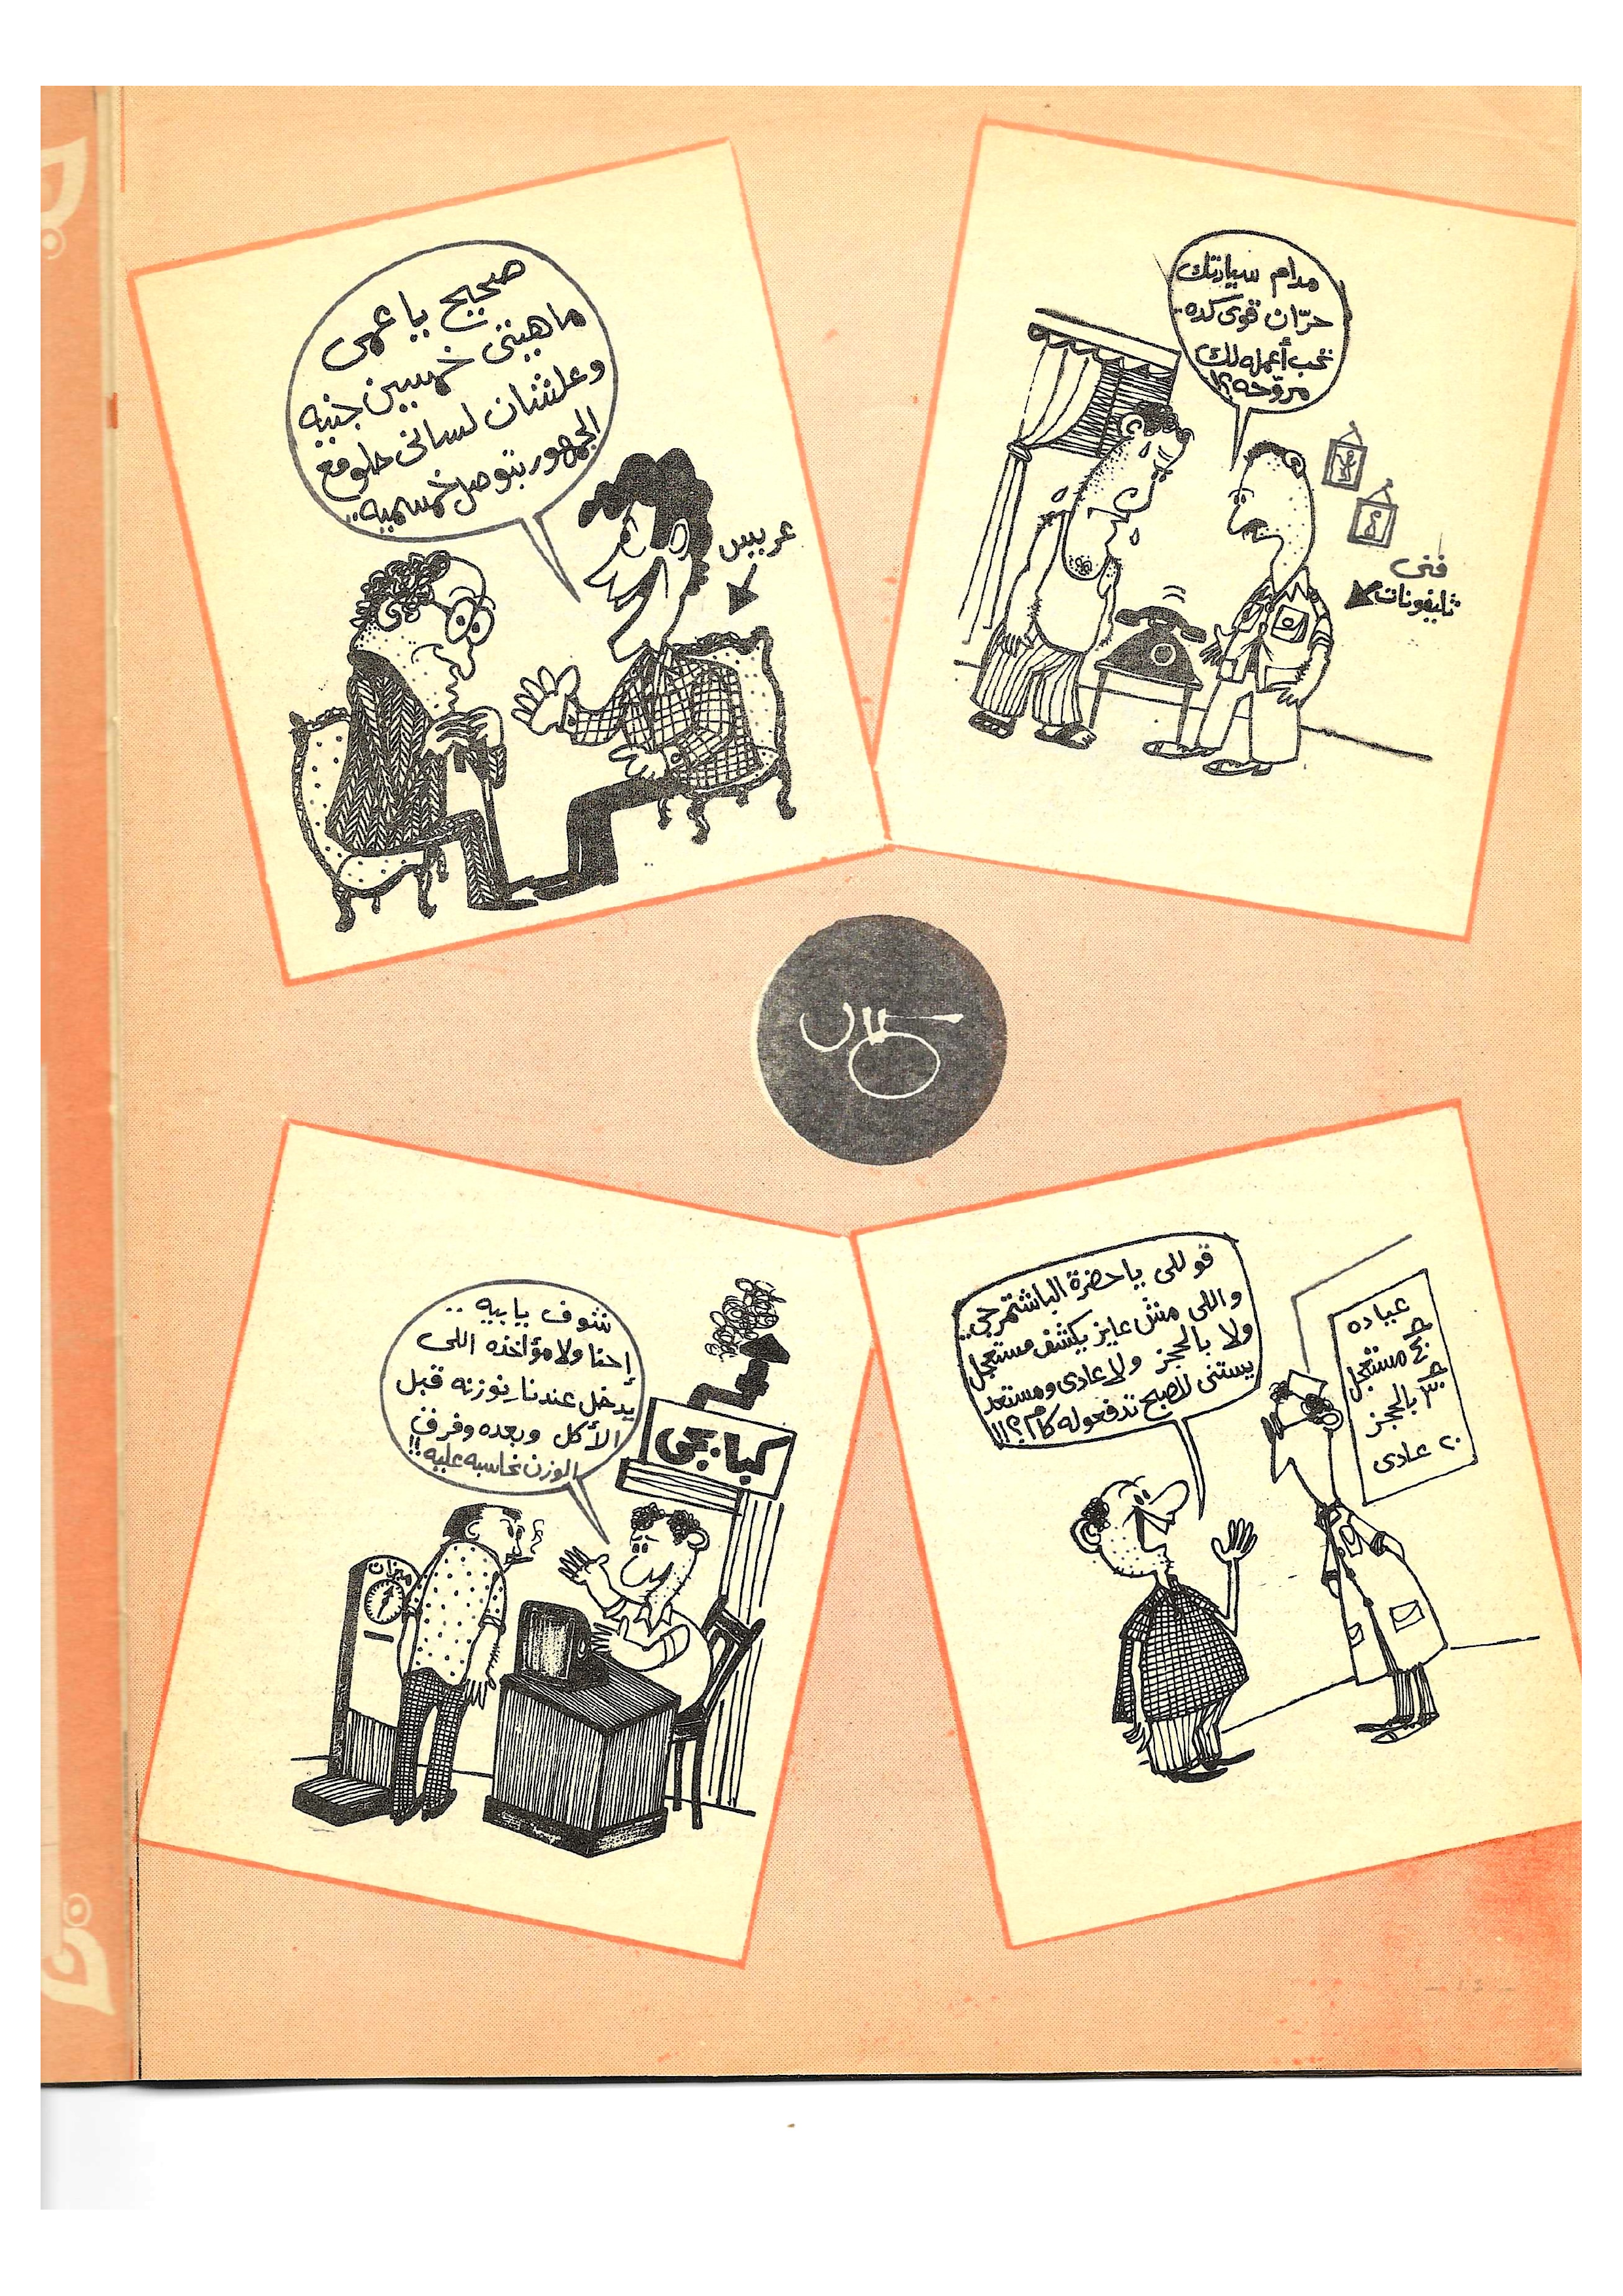 مدام سيادتك
حرّان قوى كده..
تحب أعمله لك
مروّحه؟!
فنى
تليفونات
صحيح يا عمى
ماهيتى خمسين جنيه
وعلشان لسانى حلو مع
الجمهور بتوصل خمسميه..
عريس
قوللى ياحضرة الباشتمرجى..
واللى مش عايز يكشف مستعجل
ولا بالحجز ولا عادى ومستعد
يستنى للصبح تدفعوله كام؟!!
عياده
مستعجل
بالحجز
٢٠ عادى
شوف يابيه ..
إحنا ولا مؤاخذه اللى
يدخل عندنا نوزنه قبل
الأكل وبعده وفرق
الوزن نحاسبه عليه!!
كبابجى
ميزان